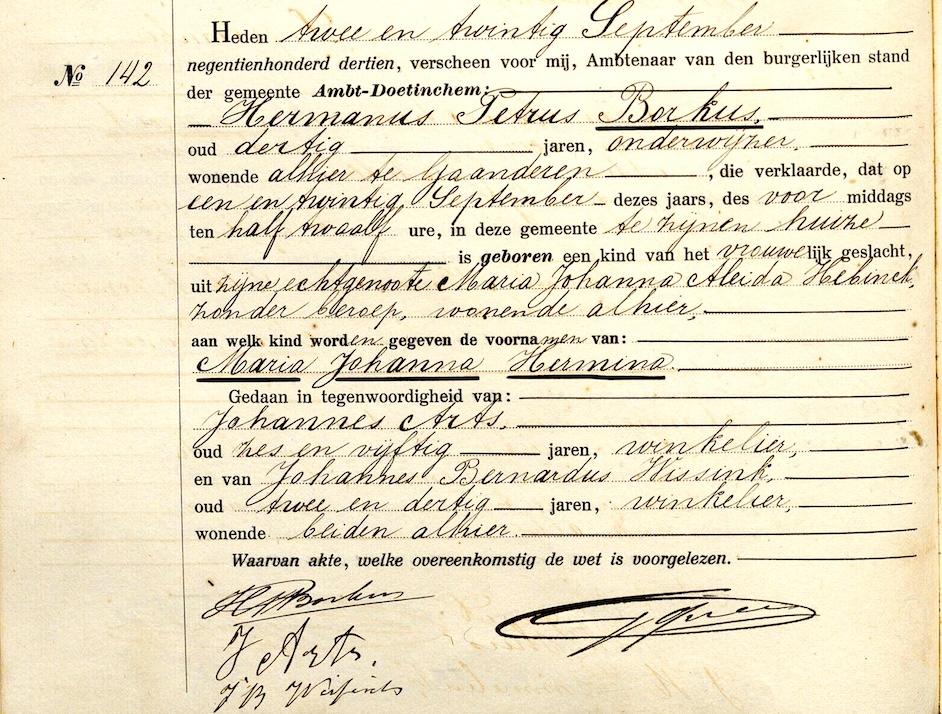 Heden twee en twintig September
negentienhonderd dertien, verscheen voor mij, Ambtenaar van den burgerlijken stand
No 142
der gemeente Ambt-Doetinchem:
Hermanus Petrus Borkus,
oud dertig jaren, onderwijzer,
wonende alhier te Gaanderen, die verklaarde, dat op
een en twintig September dezes jaars, des voor middags
ten half twaalf ure, in deze gemeente te zijnen huize
is geboren een kind van het vrouwelijk geslacht,
uit zijne echtgenoote Maria Johanna Aleida Hebinck,
zonder beroep, wonende alhier,
aan welk kind worden gegeven de voornamen van:
Maria Johanna Hermina.
Gedaan in tegenwoordigheid van:
Johannes Arts,
oud zes en vijftig jaren, winkelier,
en van Johannes Bernardus Wissink,
oud twee en dertig jaren, winkelier,
wonende beiden alhier.
Waarvan akte, welke overeenkomstig de wet is voorgelezen.
H P Borkus
J Arts.
J B Wissink